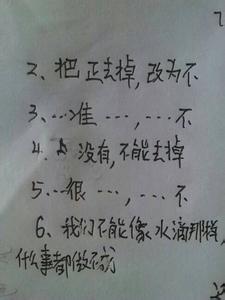 2、把正去掉,改为不
3、…准…,…不
4、没有,不能去掉
5、…很…,…不
6、我们不能像水滴那样,
什么事都做不